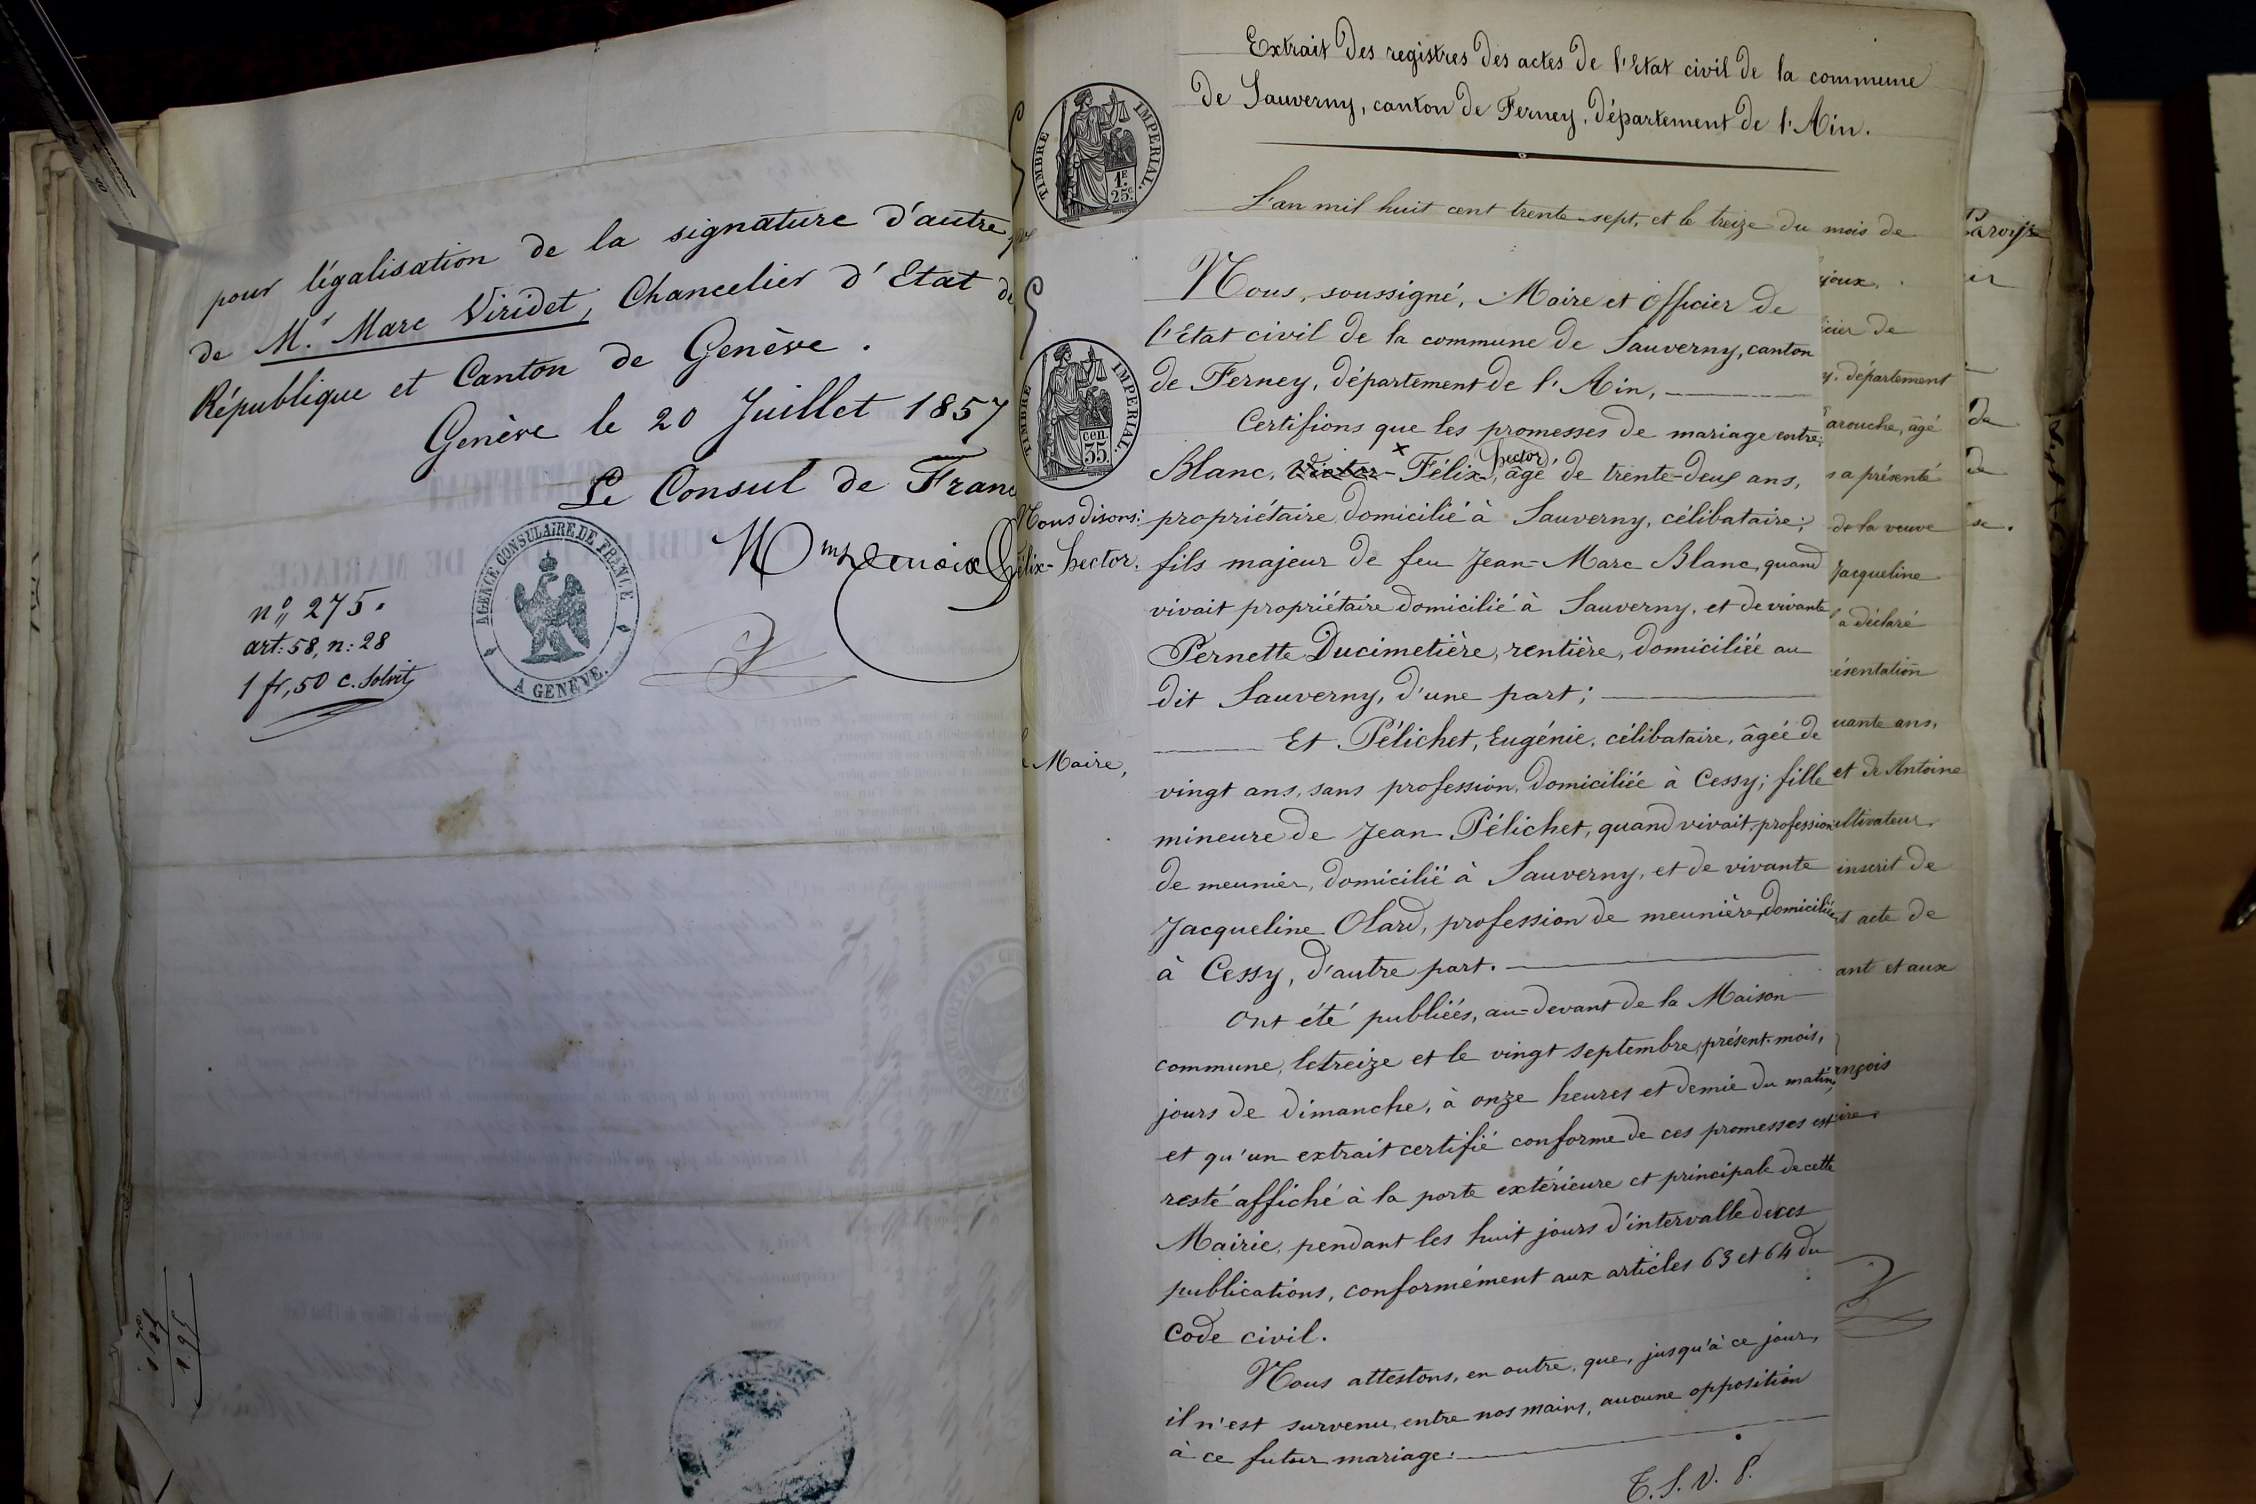 pour légalisation de la signature d'autre
de Mr. Marc Viridet, Chancelier d'Etat de
République et Canton de Genève.
Genève le 20 Juillet 1857
Le Consul de Fran
AGENCE CONSULAIRE DE FRANCE
A GENÈVE.
no, 275.
art: 58, n: 28
1 fr, 50 c. Solvit
Extrait des registres des actes de l'Etat civil de la commune
de Sauverny, canton de Ferney, département de l'Ain.
TIMBRE IMPERIAL.
1F.
25c.
L'an mil huit cent trente-sept, et le treize du mois de
Nous, soussigné, Maire et officier de
l'Etat civil de la commune de Sauverny, canton
de Ferney, département de l'Ain,
Certifions que les promesses de mariage entre:
Blanc, Victor-Félix, hector, âgé de trente-deux ans,
propriétaire, domicilié à Sauverny, célibataire;
fils majeur de feu Jean-Marc Blanc, quand
vivait propriétaire domicilié à Sauverny, et de vivante
Pernette Ducimetière, rentière, domiciliée au
dit Sauverny, d'une part;
Et Pélichet, Eugénie, célibataire, âgée de
vingt ans, sans profession, domiciliée à Cessy; fille
mineure de Jean Pélichet, quand vivait, profession
de meunier, domicilié à Sauverny, et de vivante
Jacqueline Olard, profession de meunière, domiciliée
à Cessy, d'autre part.
Ont été publiées, au-devant de la Maison
commune, le treize et le vingt septembre, présent mois,
jours de dimanche, à onze heures et demie du matin,
et qu'un extrait certifié conforme de ces promesses est
resté affiché à la porte extérieure et principale de cette
Mairie, pendant les huit jours d'intervalle de ces
publications, conformément aux articles 63 et 64 du
Code civil.
Nous attestons, en outre, que, jusqu'à ce jour,
il n'est survenu, entre nos mains, aucune opposition
à ce futur mariage.
T. S. V. P.
TIMBRE IMPERIAL.
cen.
35.
Nous disons:
félix-hector.
Maire,
joux.
icier de
y, département
arouche, âgé
a présenté
de la veuve
Jacqueline
a déclaré
ésentation
uante ans,
et de Antoine
ultivateur,
inscrit de
acte de
ant et aux
ançois
ire.
Paroisse
de
de